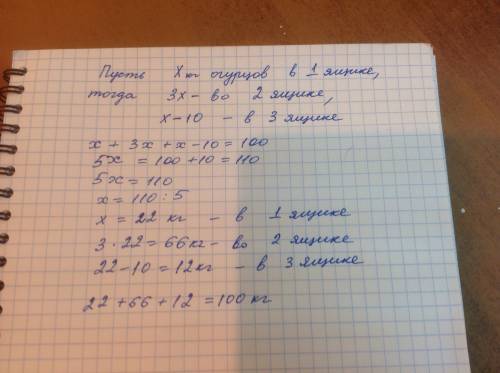 Пусть х кг огурцов в 1 ящике,
тогда 3х - во 2 ящике,
х - 10 - в 3 ящике
х + 3х + х - 10 = 100
5х = 100 + 10 = 110
5х = 110
х = 110 : 5
х = 22 кг - в 1 ящике
3 · 22 = 66 кг - во 2 ящике
22 - 10 = 12 кг - в 3 ящике
22 + 66 + 12 = 100 кг